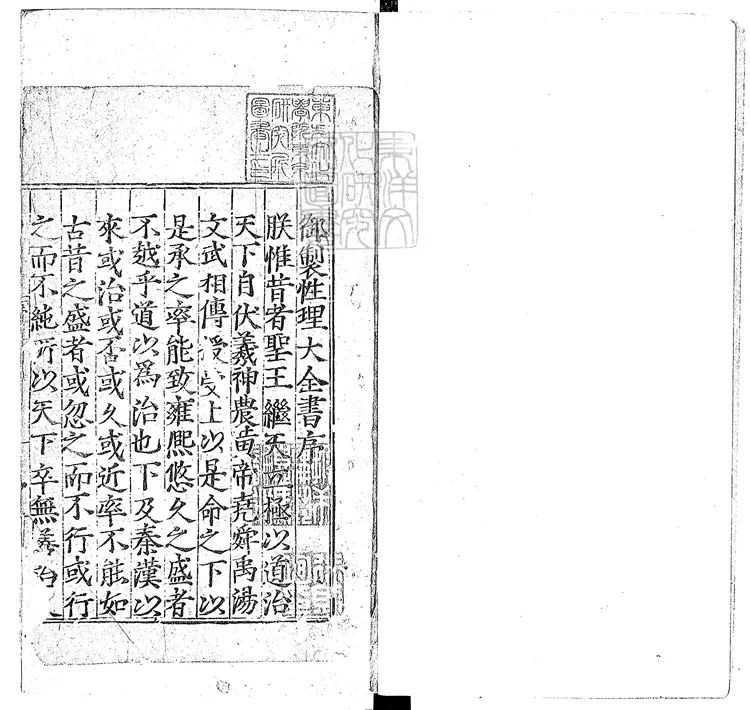 御製性理大全書序
朕惟昔者聖王繼天立極以道治
天下自伏羲神農黃帝堯舜禹湯
文武相傳授受上以是命之下以
是承之率能致雍熙悠久之盛者
不越乎道以為治也下及秦漢以
來或治或否或久或近率不能如
古昔之盛者或忽之而不行或行
之而不純所以天下卒無善治